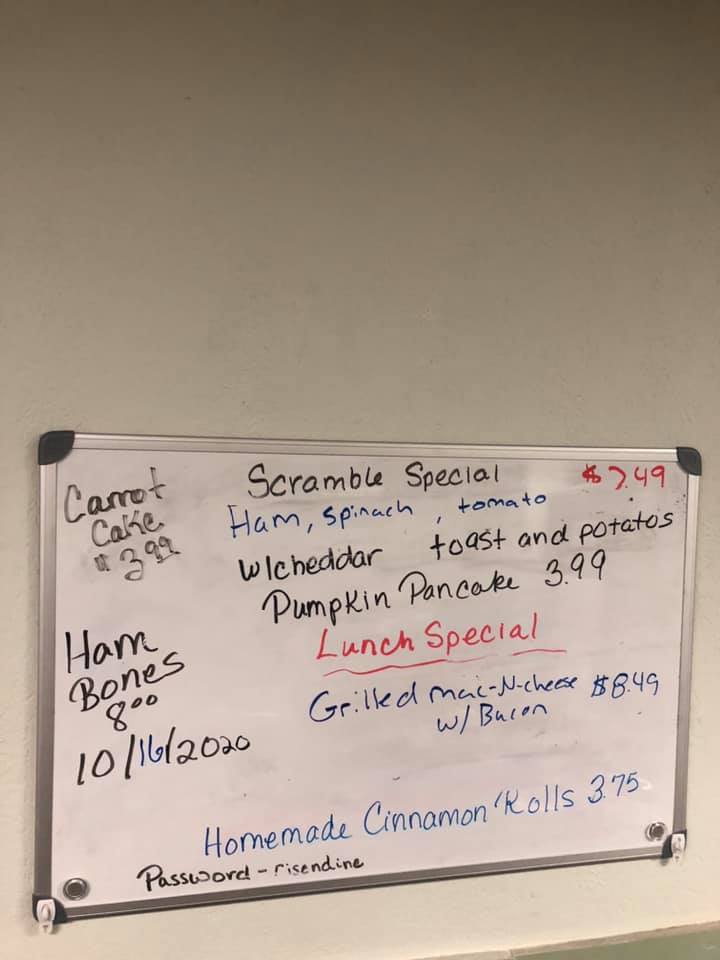 Carrot
Cake
$3.99
Ham
Bones
8⁰⁰
10/16/2020
Scramble Special $7.49
Ham, spinach, tomato
w/cheddar toast and potatos
Pumpkin Pancake 3.99
Lunch Special
Grilled mac-N-cheese $8.49
w/ Bacon
Homemade Cinnamon Rolls 3.75
Password - risendine